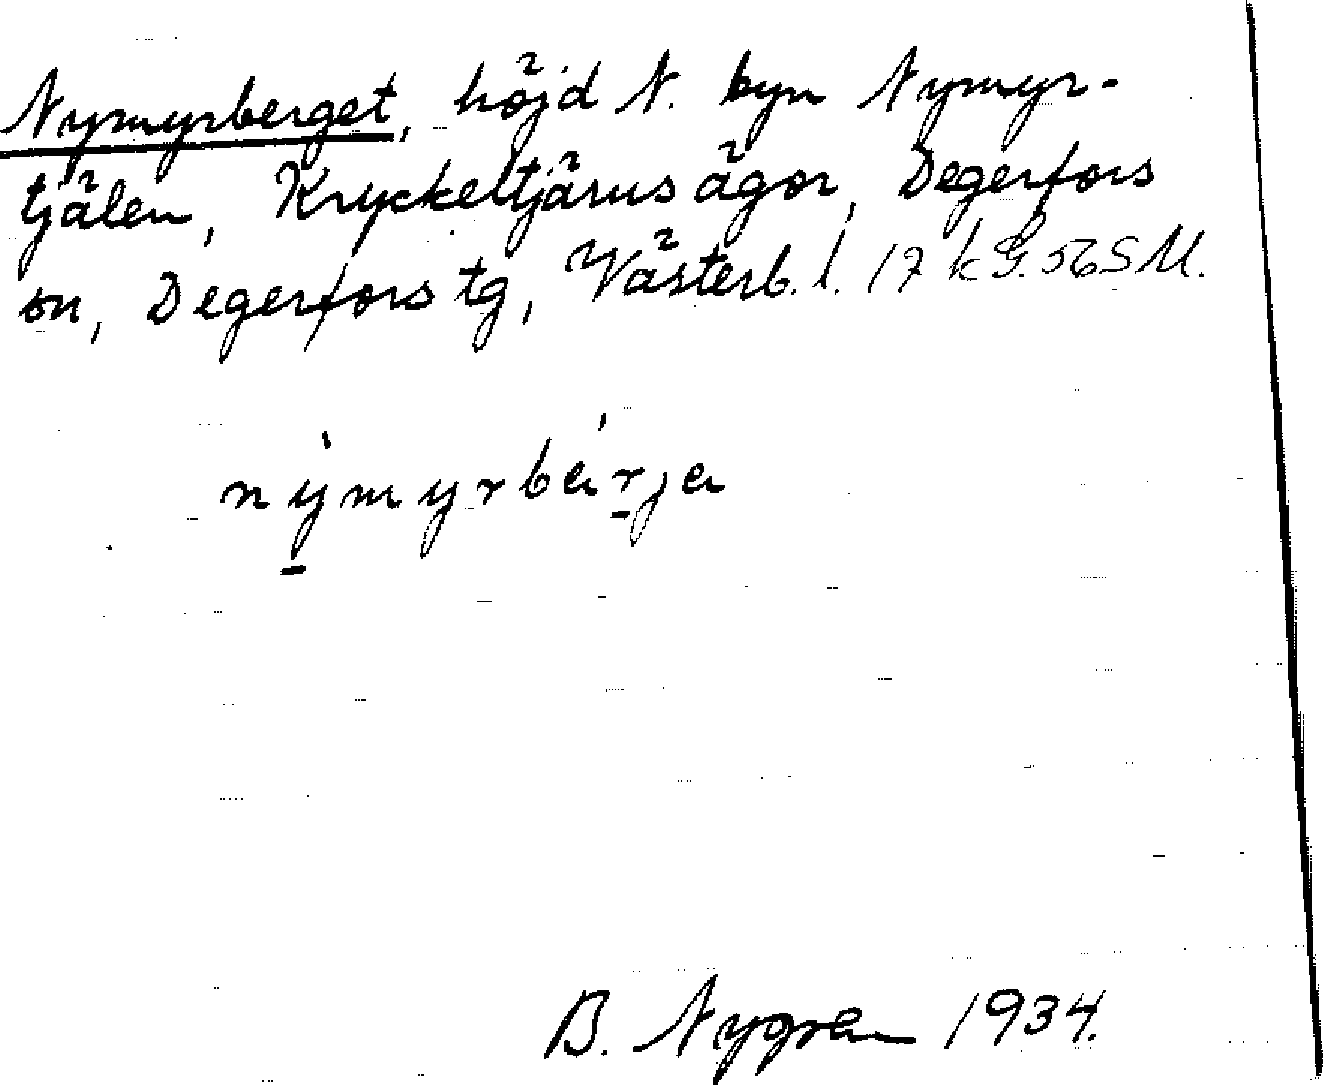 Nymyrberget, höjd N. byn Nymyr-
tjälen, Kryckeltjärns ägor, Degerfors
sn, Degerfors tg, Västerb. l. 17 k G. 56 SM.
nỳmyrbárja
B. Nygren 1934.